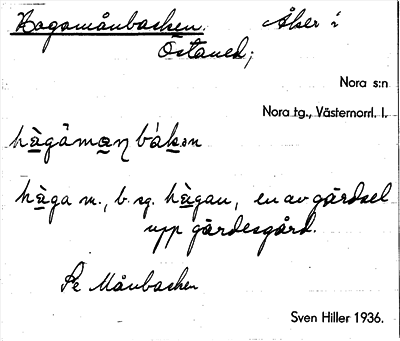 Hagamånbacken. Åker i
Östaned;
Nora s:n
Nora tg., Västernorrl. l.
hàgåmaɳ bàkən
hàga m., b. sg. hàgan, en av gärdsel
upp gärdesgård.
Se Månbacken
Sven Hiller 1936.